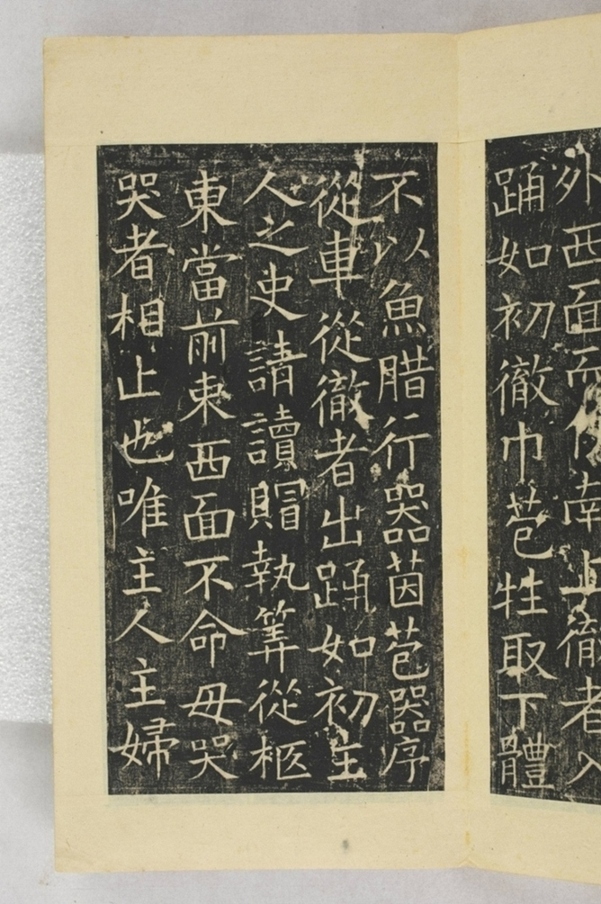 外西面而俟南上徹者入
踊如初徹巾苞牲取下體
不以魚腊行器茵苞器序
從車從徹者出踊如初主
人之史請讀賵執筭從柩
東當前束西面不命毋哭
哭者相止也唯主人主婦